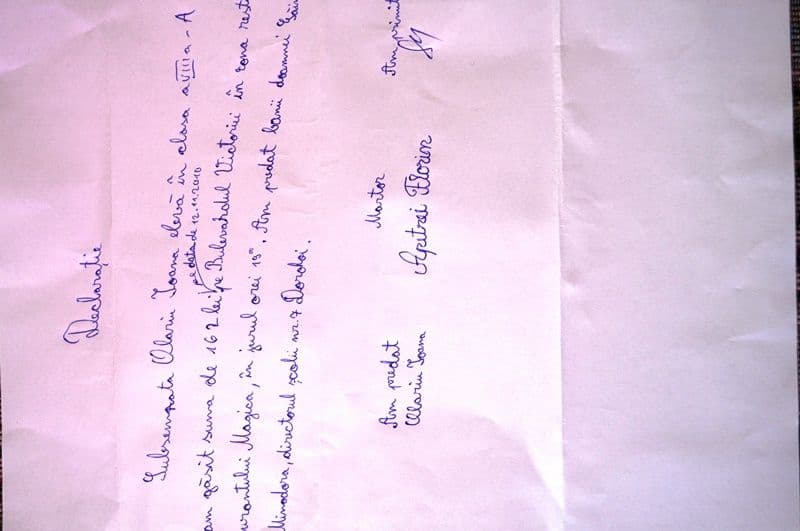 Declarație
Subsemnata Olariu Ioana elevă în clasa a VIII a - A
pe data de 12.11.2010
am găsit suma de 162 lei pe Bulevardul Victoriei în zona rest
urantului Magica, în jurul orei 15°°. Am predat banii doamnei
Minodora, directorul școlii nr. 7 Dorohoi.
Am predat Martor Am primit
Olariu Ioana Apitrei Florin